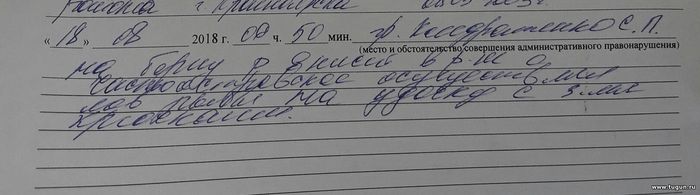 района г. Красноярска
« 18 » 08 2018 г. 09 ч. 50 мин. гр. Кондратенко С. П.
(место и обстоятельство совершения административного правонарушения)
на берегу р. Енисей в р-не о.
осуществлял
лов рыбы на удочку с 3-мя
крючками.
www.tugun.ru